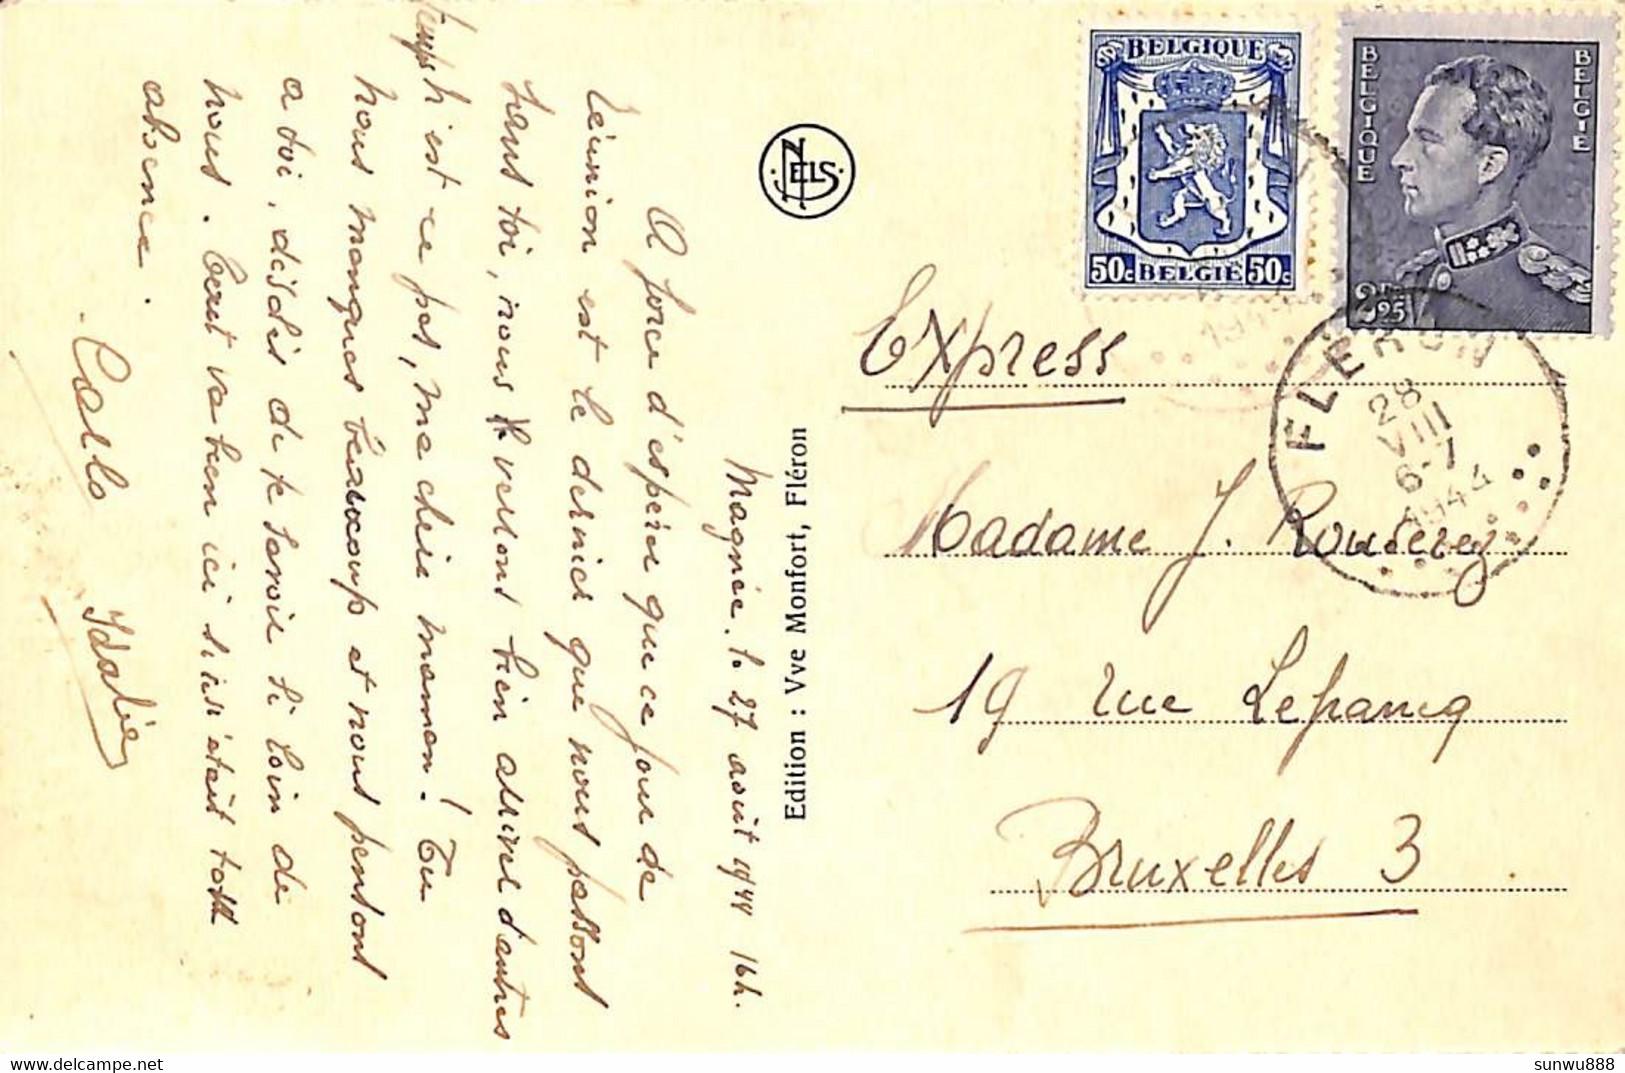 Magnée. le 27 août 1944 16h.
A force d'espérer que ce jour de
réunion est le dernier que nous passons
sans toi, nous verrons bien arriver d'autres
temps
n'est-ce pas, ma chère maman! Tu
nous manques beaucoup et nous pensons
a toi, désolés de te savoir si loin de
nous. Tout va bien ici si ce n'était ton
absence.
Carlo
NELS
Edition : Vve Monfort, Fléron
BELGIQUE
50c BELGIË 50c
BELGIQUE
BELGIE
2F25
FLERON
28
VIII
6-7
1944
Express
Madame J.
19 rue Lefrancq
Bruxelles 3
sunwu888